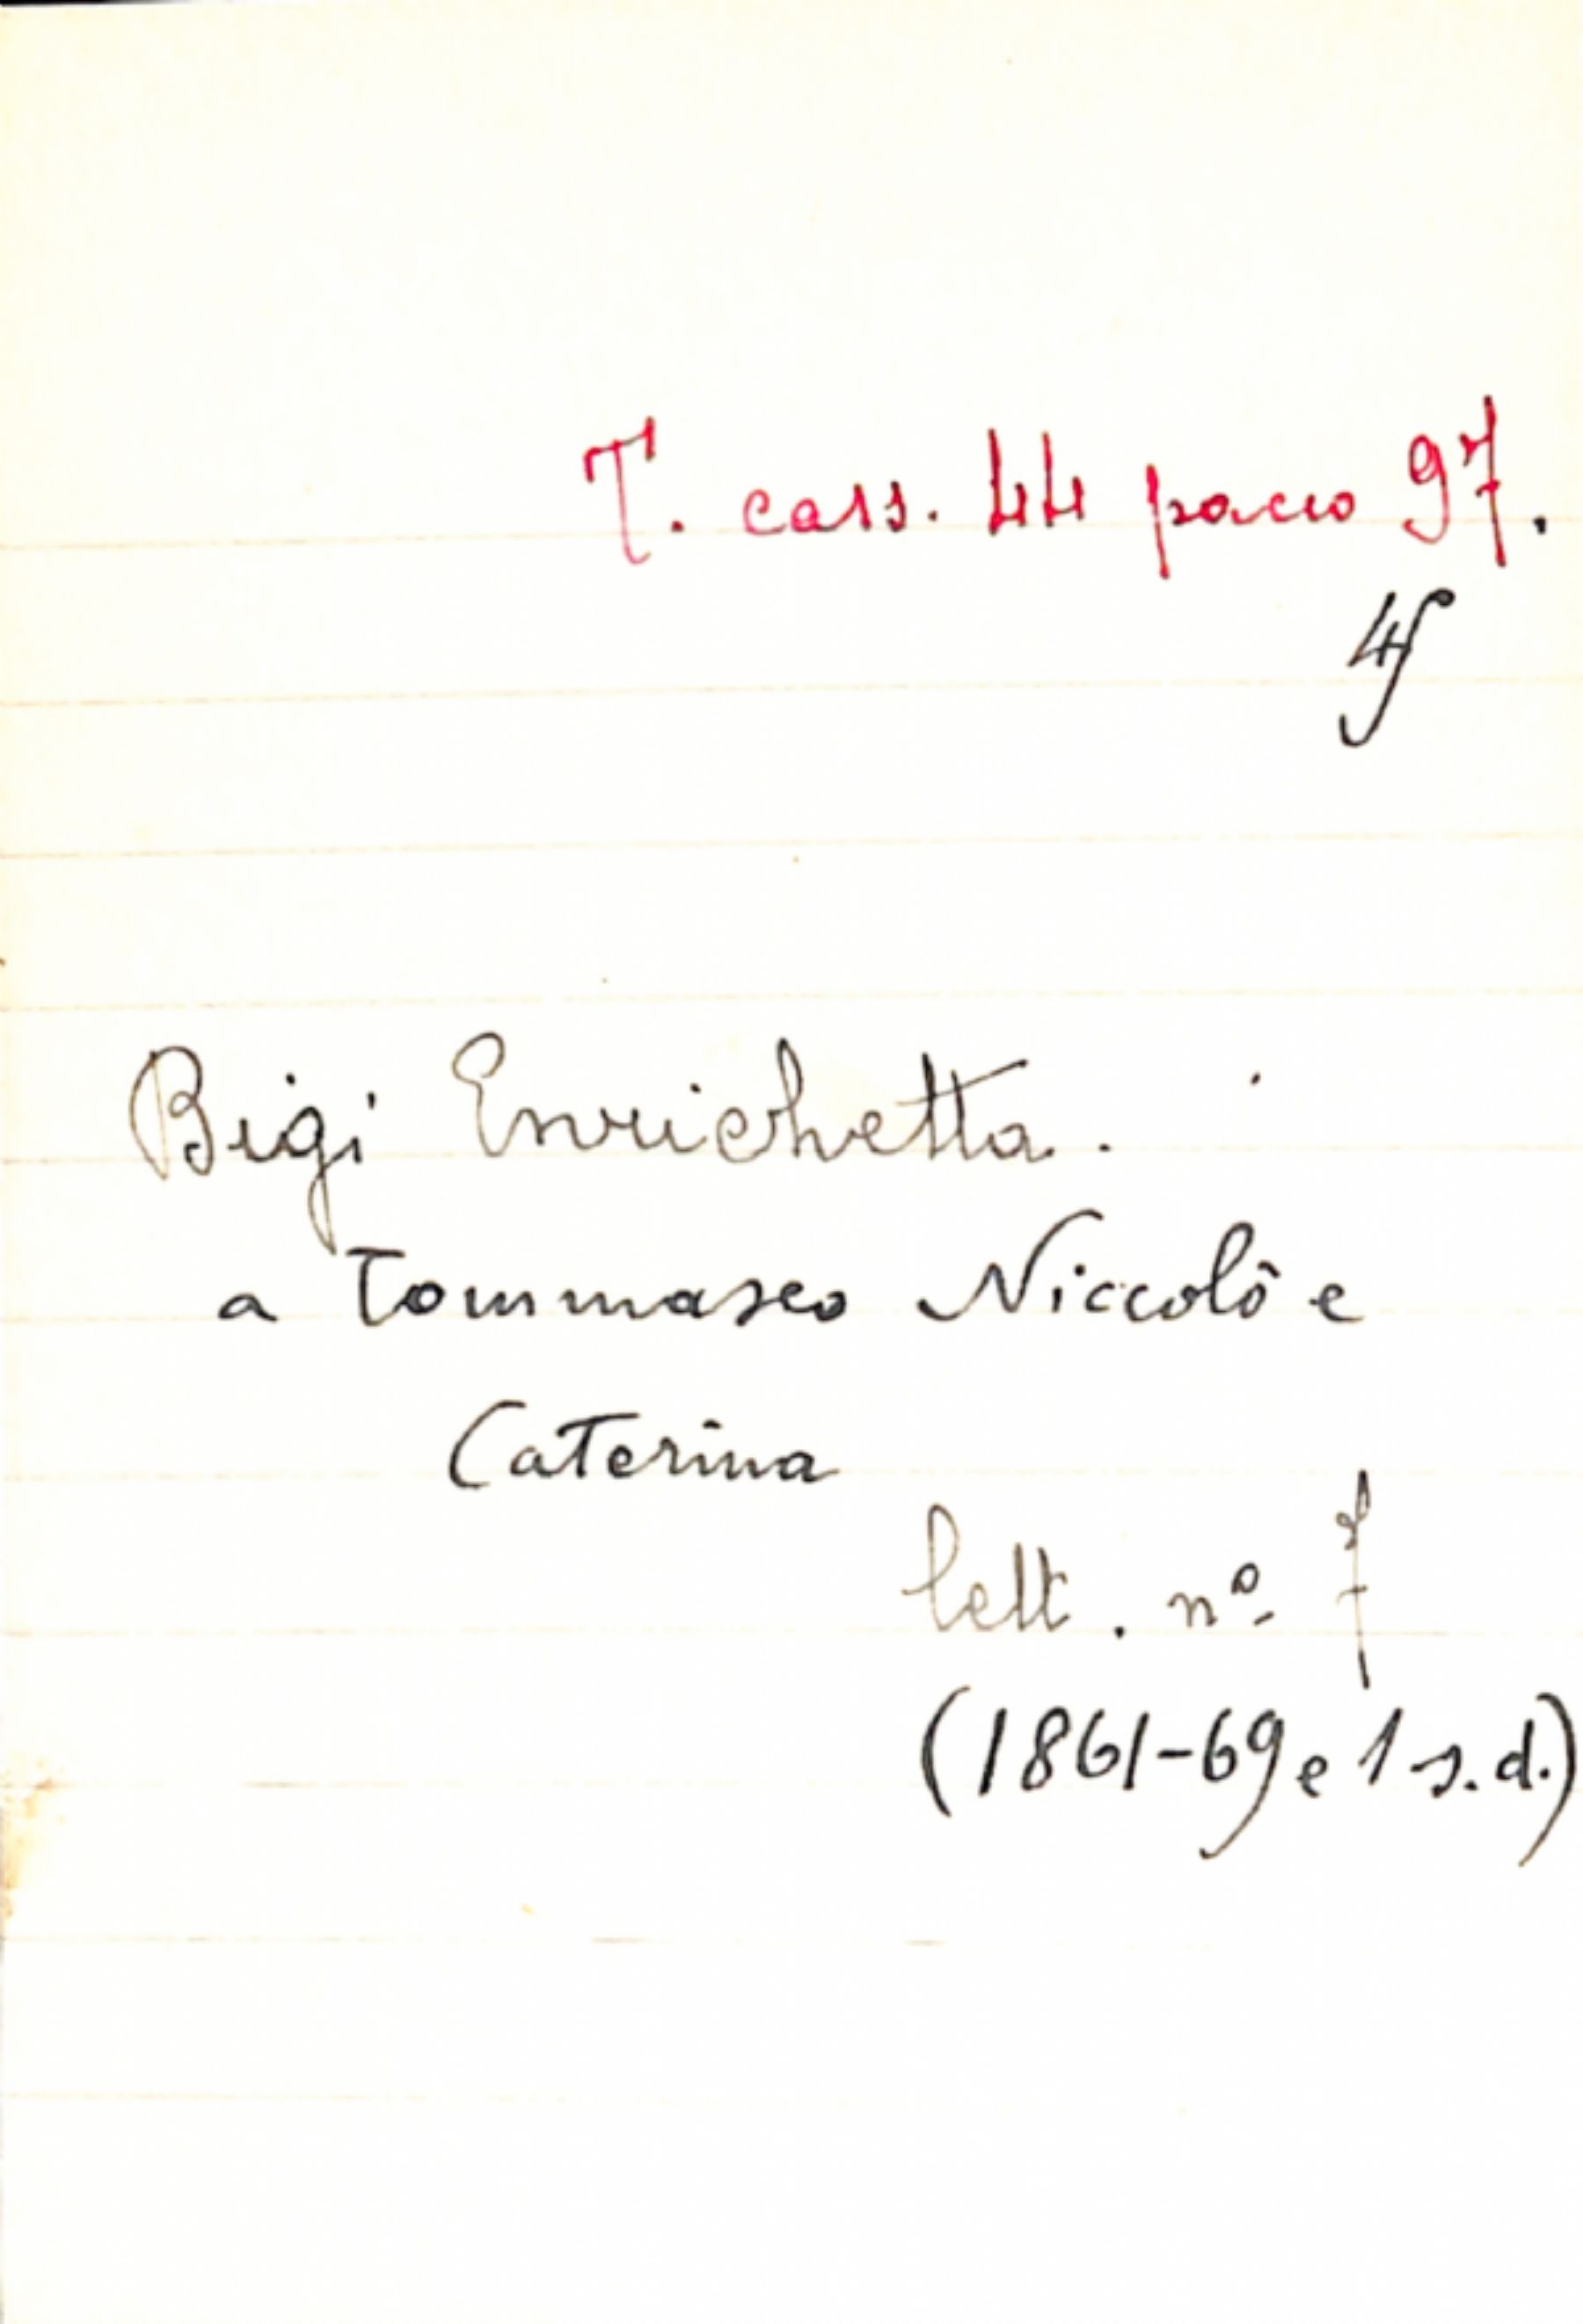 T. cass. 44 pacco 97.
Bigi Enrichetta.
a Tommaseo Niccolò e
Caterina
lett. nº 7
(1861-69 e 1 s.d.)